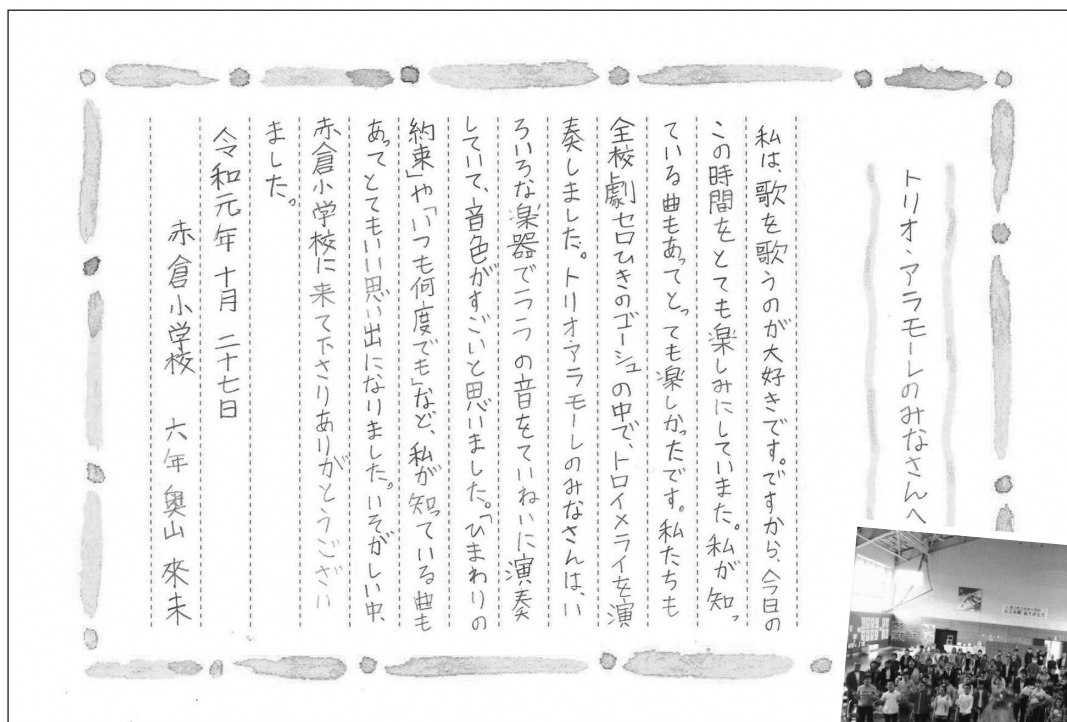 トリオ・アラモーレのみなさんへ
私は、歌を歌うのが大好きです。ですから、今日の
この時間をとても楽しみにしていまた。私が知っ
ている曲もあってとっても楽しかったです。私たちも
全校劇セロひきのゴーシュの中で、トロイメライを演
奏しました。トリオアラモーレのみなさんは、い
ろいろな楽器で一つ一つの音をていねいに演奏
していて、音色がすごいと思いました。「ひまわりの
約束」や「いつも何度でも」など、私が知っている曲も
あってとてもいい思い出になりました。いそがしい中、
赤倉小学校に来て下さりありがとうござい
ました。
令和元年 十月 二十七日
赤倉小学校 六年 奥山 來未